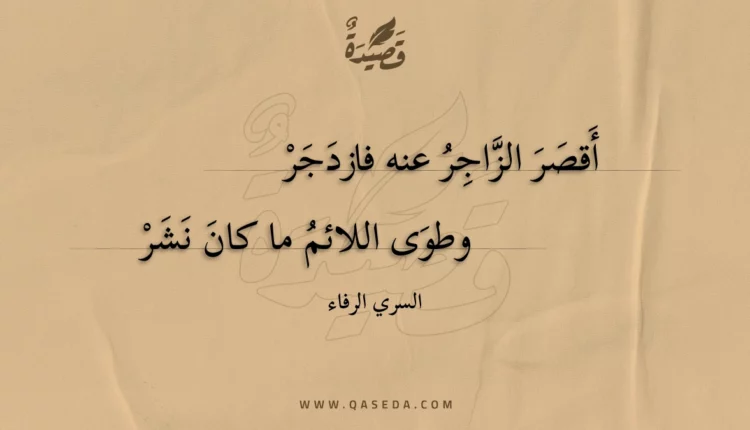 قَصِيْدَةٌ
أَقصَرَ الزَّاجِرُ عنه فازدَجَرْ
وطوَى اللائمُ ما كانَ نَشَرْ
السري الرفاء
WWW.QASEDA.COM